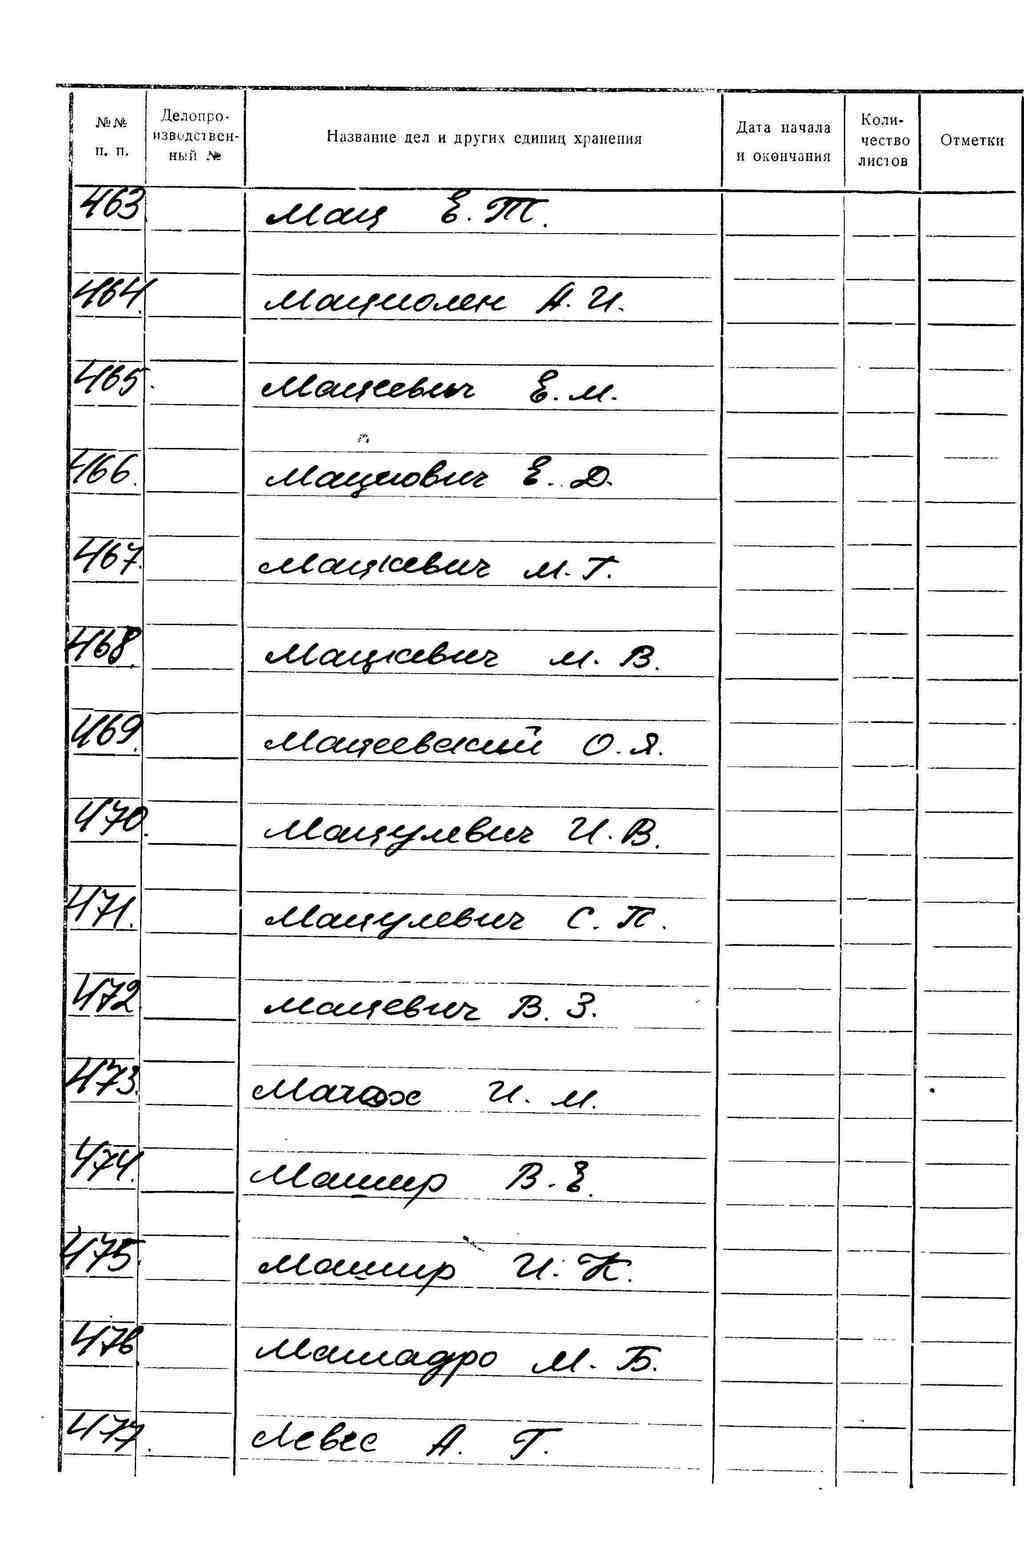 №№ п. п. Делопроизводственный № Название дел и других единиц хранения Дата начала и окончания Количество листов Отметки
463. Мац Е. Т.
464. А. И.
465. Мацкевич Е. М.
466. Е. Д.
467. Мацкевич М. Г.
468. Мацкевич М. В.
469. Мацеевский О. Я.
470. Мацулевич И. В.
471. Мацулевич С. П.
472. Мацевич В. З.
473. И. М.
474. Машир В. Е.
475. Машир И. К.
476. М. Б.
477. Левес А. Г.